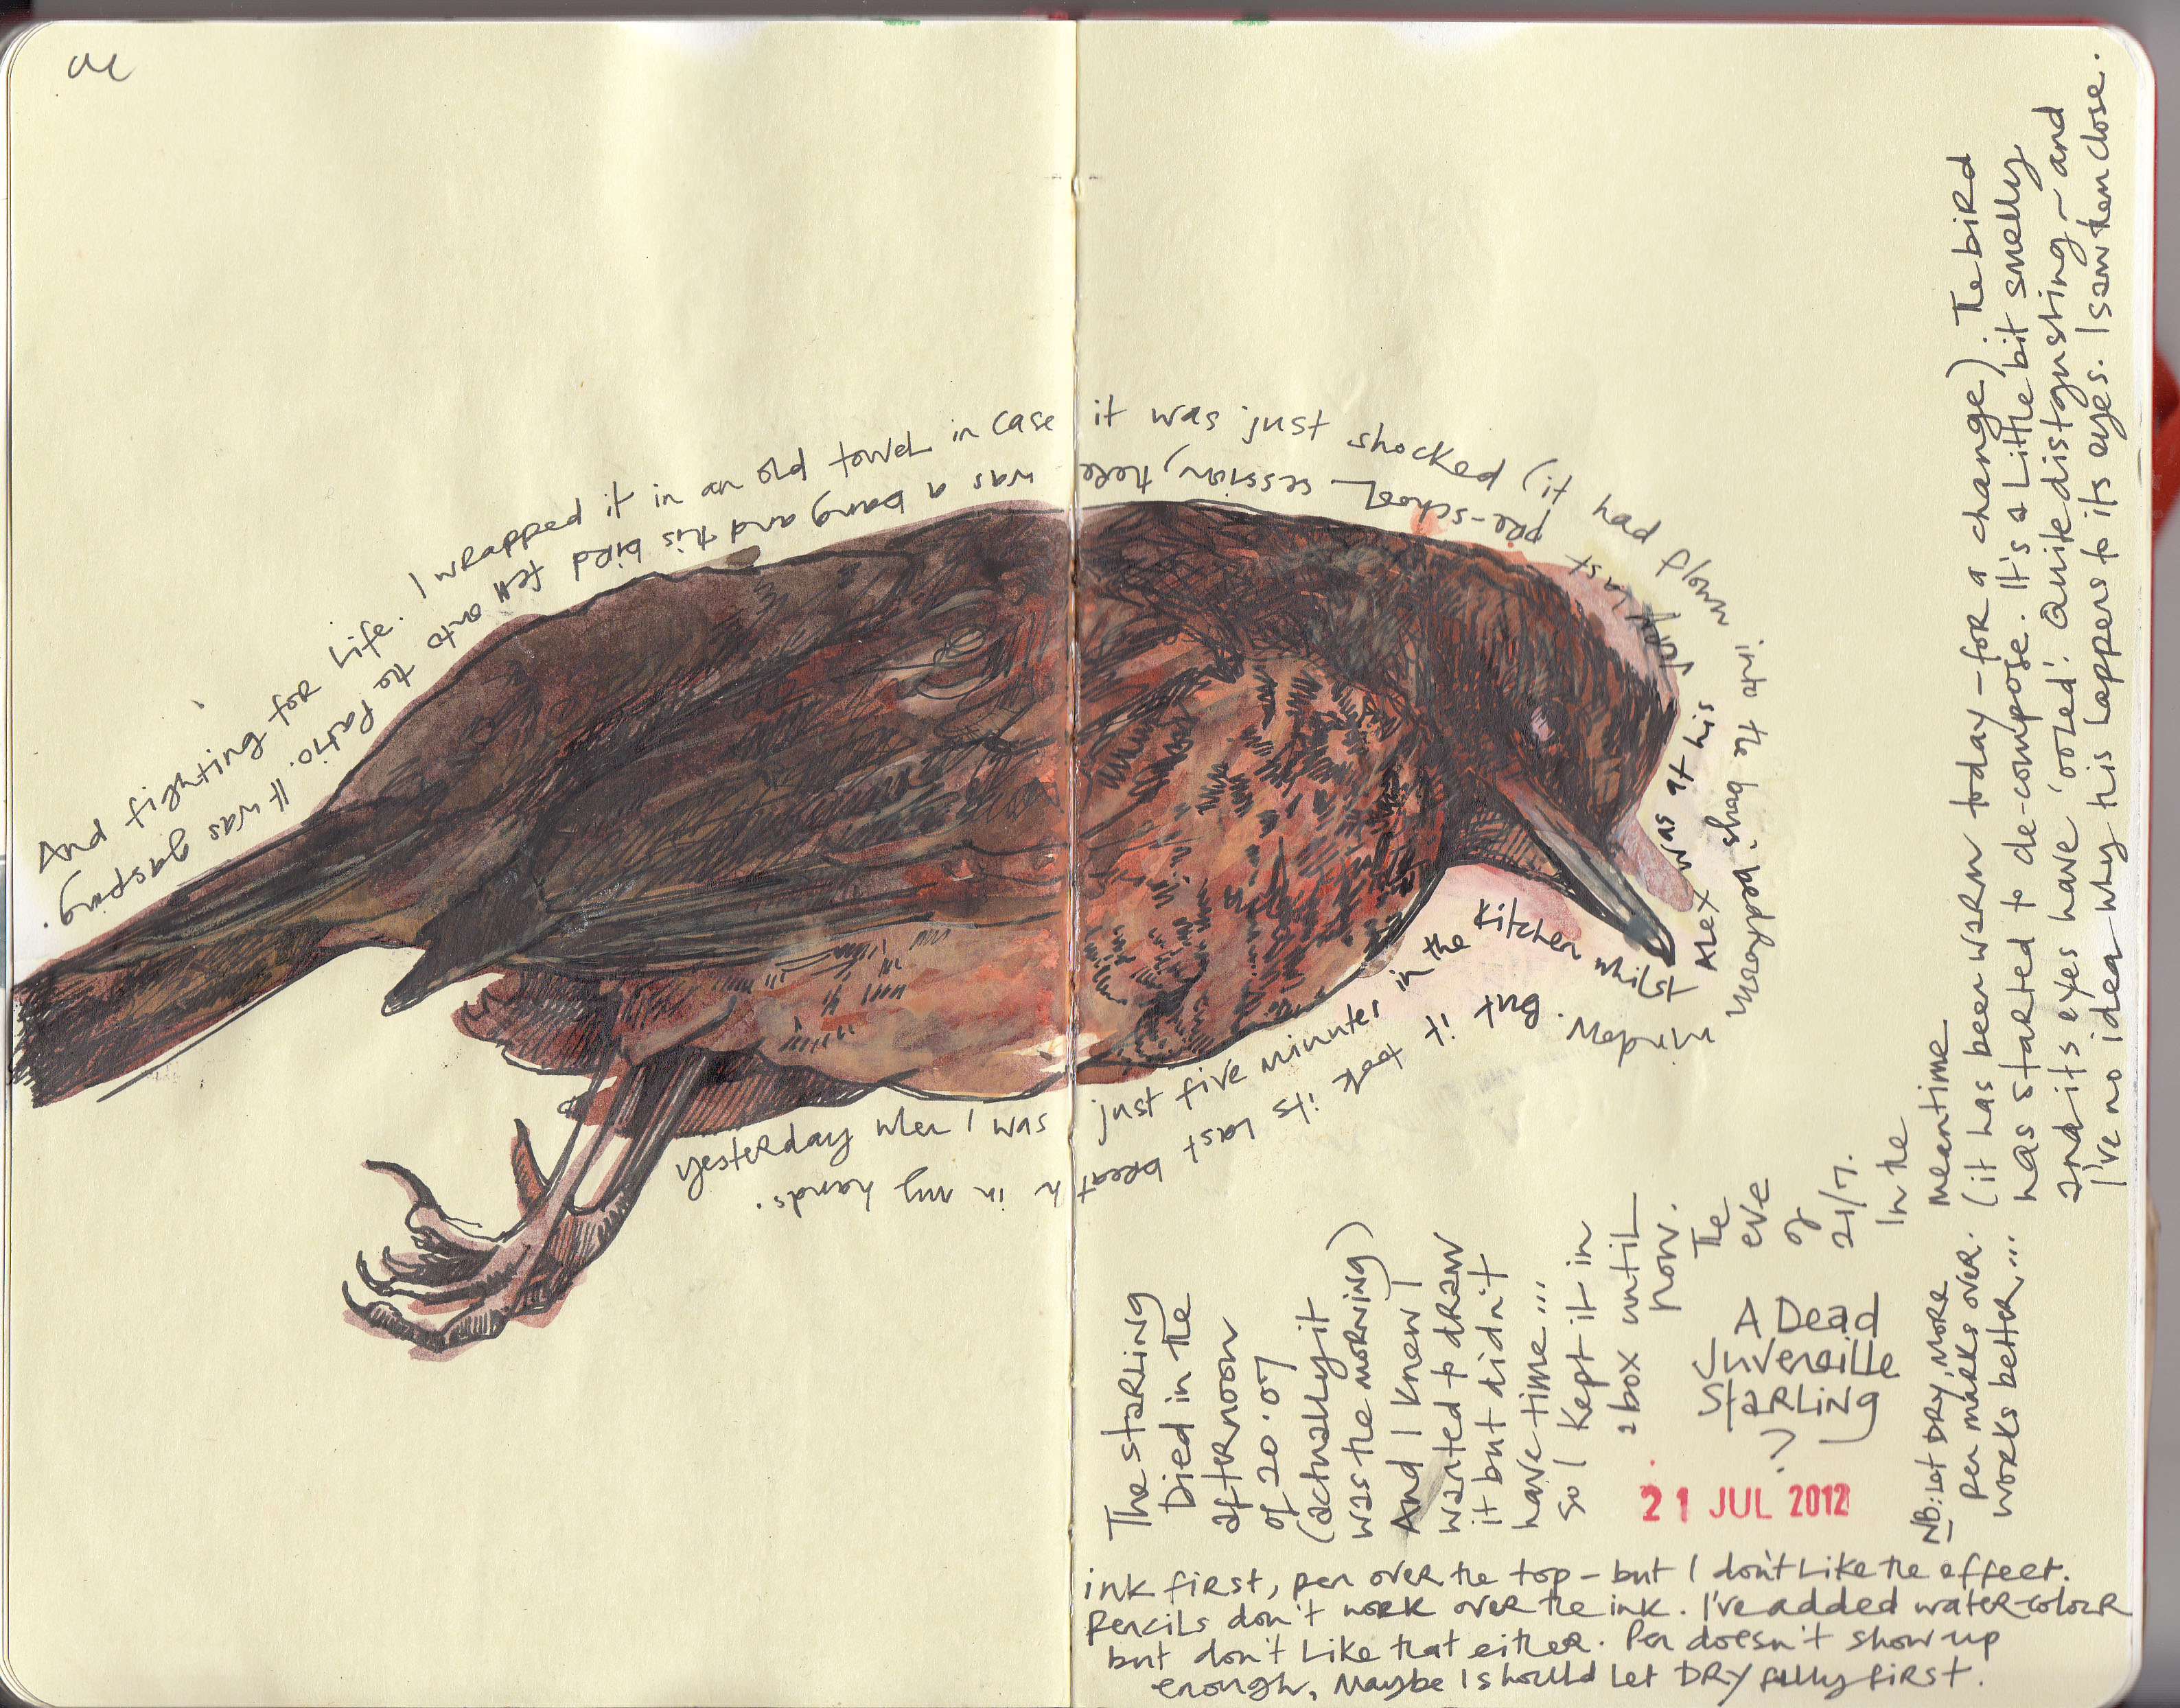 Yesterday when I was just five minutes in the kitchen whilst
Alex was at his very last pre-school session, there was a bang and this bird fell onto the patio. It was gasping.
And fighting for life. I wrapped it in an old towel in case it was just shocked (it had flown into the
But it took its last breath in my hands.
The starling
Died in the
afternoon
of 20.07
(actually it
was the morning)
And I knew I
wanted to draw
it but didn't
have time...
so I kept it in
a box until
now.
The
eve
of
21/7.
In the
meantime
(it has been warm today - for a change). The bird
has started to de-compose. It's a little bit smelly
and its eyes have 'oozed'. Quite distgusting - and
I've no idea why this happens to its eyes. I saw them close.
A Dead
Juvenaille
Starling
?
21 JUL 2012
ink first, pen over the top - but I don't like the effect.
Pencils don't work over the ink. I've added water-colour
but don't like that either. Pen doesn't show up
enough, Maybe I should let DRY fully first.
NB: Let DRY, MORE
pen marks over.
works better...